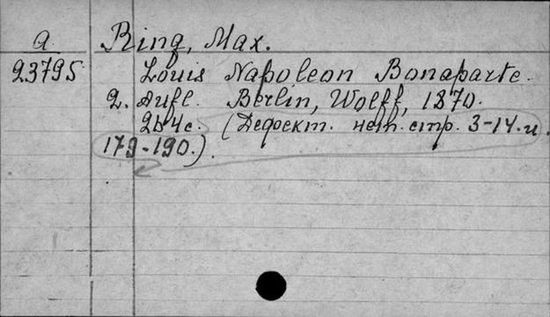 a
23795
Ring, Max.
Louis Napoleon Bonaparte.
2. Aufl. Berlin, Wolff, 1870.
264 с. (Дефект. нет. стр. 3-14. и
179-190.).